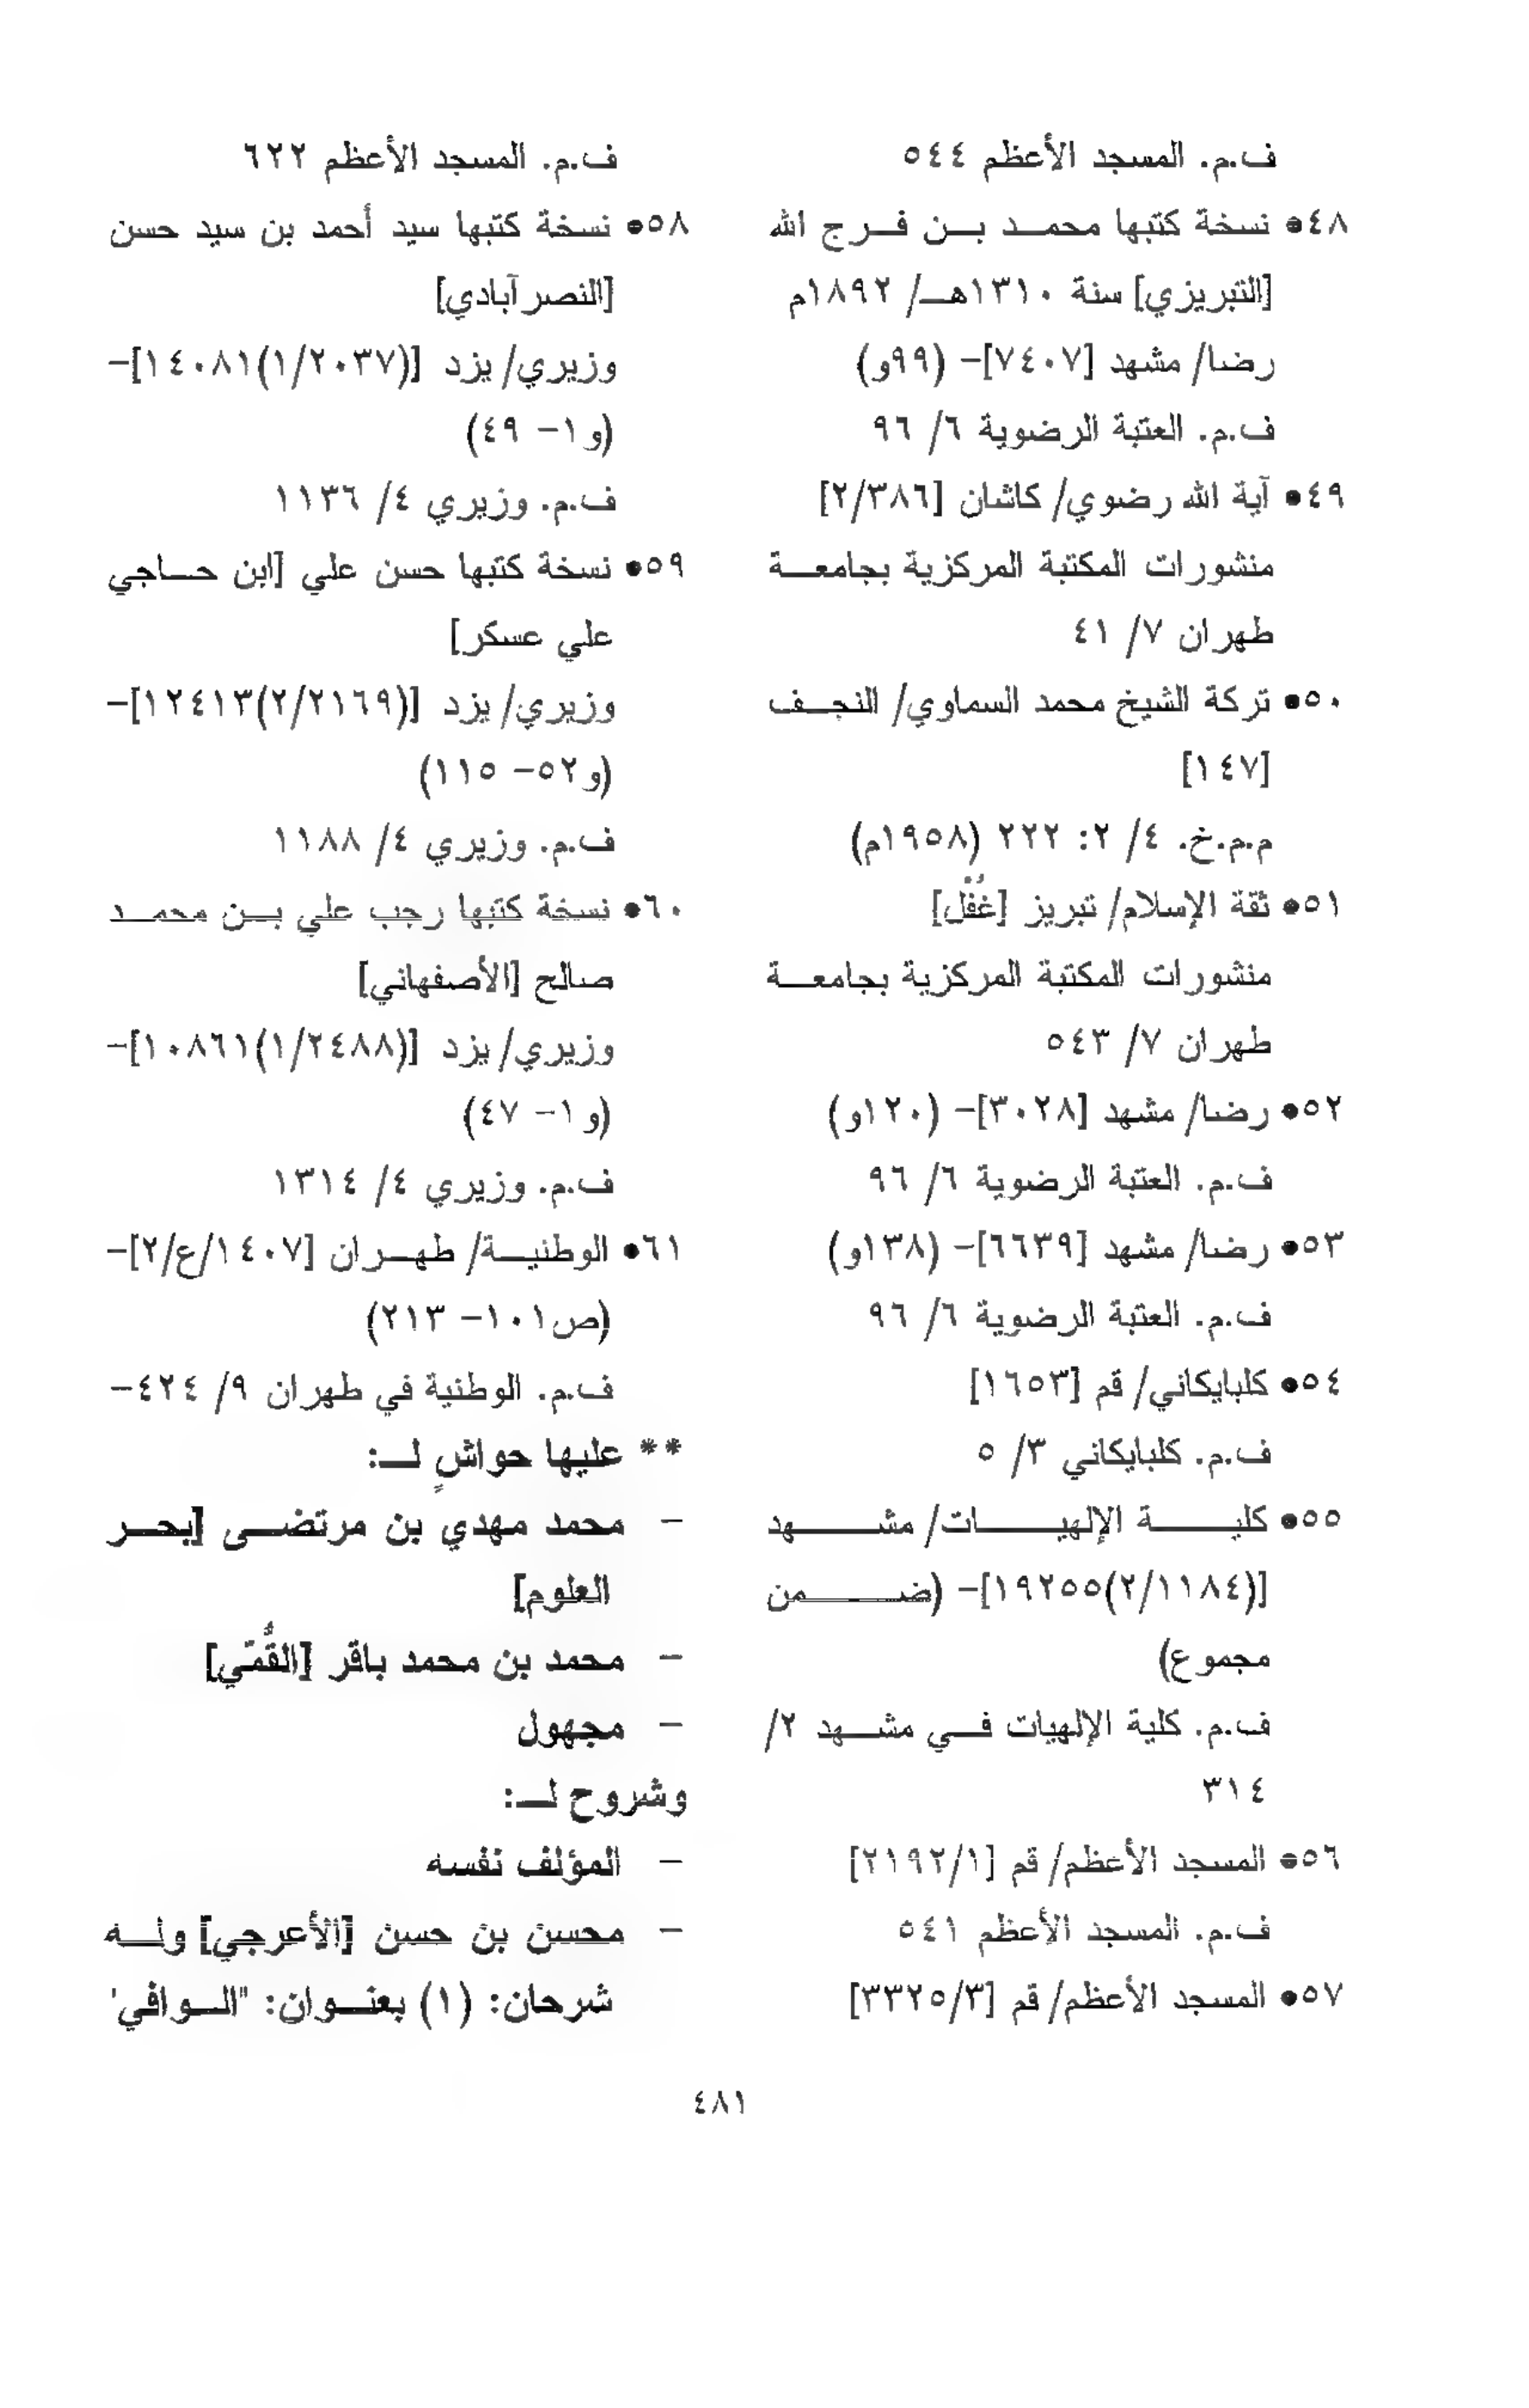 ف.م. المسجد الأعظم ٥٤٤
٤٨● نسخة كتبها محمد بن فرج الله
[التبريزي] سنة ١٣١٠هـ/ ١٨٩٢م
رضا/ مشهد [٧٤٠٧]- (٩٩و)
ف.م. العتبة الرضوية ٦/ ٩٦
٤٩● آية الله رضوي/ كاشان [٢/٣٨٦]
منشورات المكتبة المركزية بجامعة
طهران ٧/ ٤١
٥٠● تركة الشيخ محمد السماوي/ النجف
[١٤٧]
م.م.خ. ٤/ ٢: ٢٢٢ (١٩٥٨م)
٥١● ثقة الإسلام/ تبريز [غُفْل]
منشورات المكتبة المركزية بجامعة
طهران ٧/ ٥٤٣
٥٢● رضا/ مشهد [٣٠٢٨]- (١٢٠و)
ف.م. العتبة الرضوية ٦/ ٩٦
٥٣● رضا/ مشهد [٦٦٣٩]- (١٣٨و)
ف.م. العتبة الرضوية ٦/ ٩٦
٥٤● كلبايكاني/ قم [١٦٥٣]
ف.م. كلبايكاني ٣/ ٥
٥٥● كلية الإلهيات/ مشهد
[(٢/١١٨٤)١٩٢٥٥]- (ضمن
مجموع)
ف.م. كلية الإلهيات في مشهد ٢/
٣١٤
٥٦● المسجد الأعظم/ قم [٢١٩٢/١]
ف.م. المسجد الأعظم ٥٤١
٥٧● المسجد الأعظم/ قم [٣٣٢٥/٣]
ف.م. المسجد الأعظم ٦٢٢
٥٨● نسخة كتبها سيد أحمد بن سيد حسن
[النصرآبادي]
وزيري/ يزد [(١/٢٠٣٧)١٤٠٨١]-
(و١- ٤٩)
ف.م. وزيري ٤/ ١١٣٦
٥٩● نسخة كتبها حسن علي [ابن حاجي
علي عسكر]
وزيري/ يزد [(٢/٢١٦٩)١٢٤١٣]-
(و٥٢- ١١٥)
ف.م. وزيري ٤/ ١١٨٨
٦٠● نسخة كتبها رجب علي بن محمد
صالح [الأصفهاني]
وزيري/ يزد [(١/٢٤٨٨)١٠٨٦١]-
(و١- ٤٧)
ف.م. وزيري ٤/ ١٣١٤
٦١● الوطنية/ طهران [١٤٠٧/ع/٢]-
(ص١٠١- ٢١٣)
ف.م. الوطنية في طهران ٩/ ٤٢٤-
** عليها حواشٍ لـ:
- محمد مهدي بن مرتضى [بحر
العلوم]
- محمد بن محمد باقر [القُمّي]
- مجهول
وشروح لـ:
- المؤلف نفسه
- محسن بن حسن [الأعرجي] وله
شرحان: (١) بعنوان: "الوافي"
٤٨١